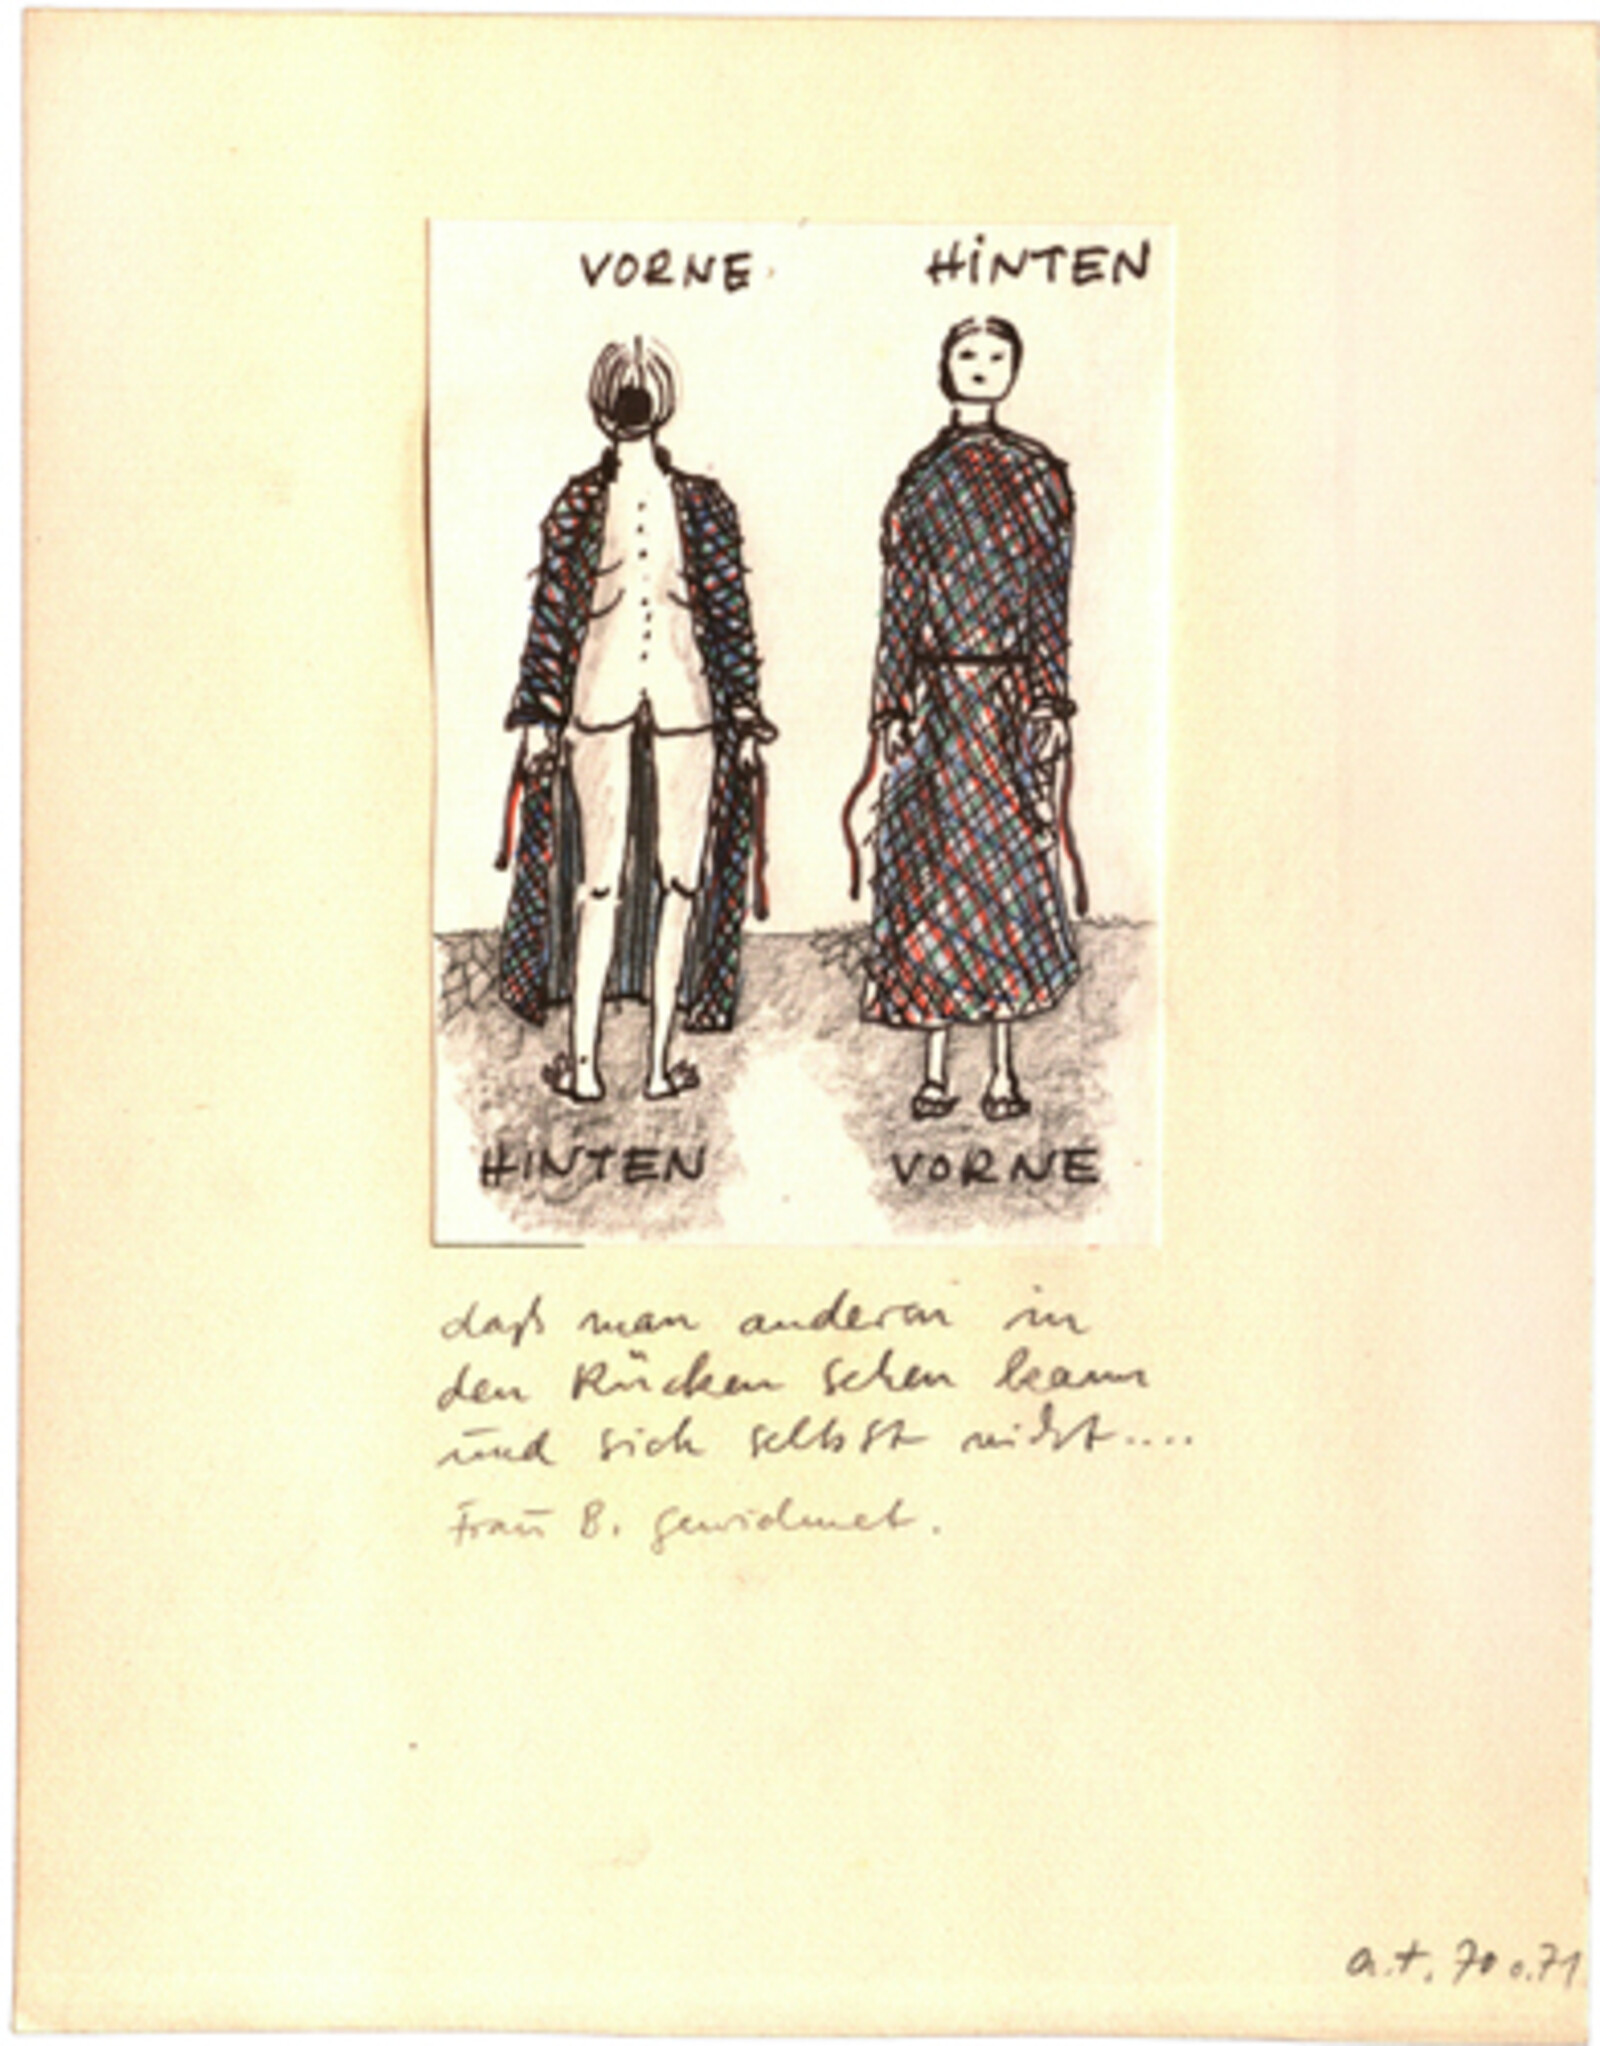 VORNE HINTEN
HINTEN VORNE
daß man anderen in
den Rücken sehen kann
und sich selbst nicht....
Frau B. gewidmet.
a.t. 70 o. 71